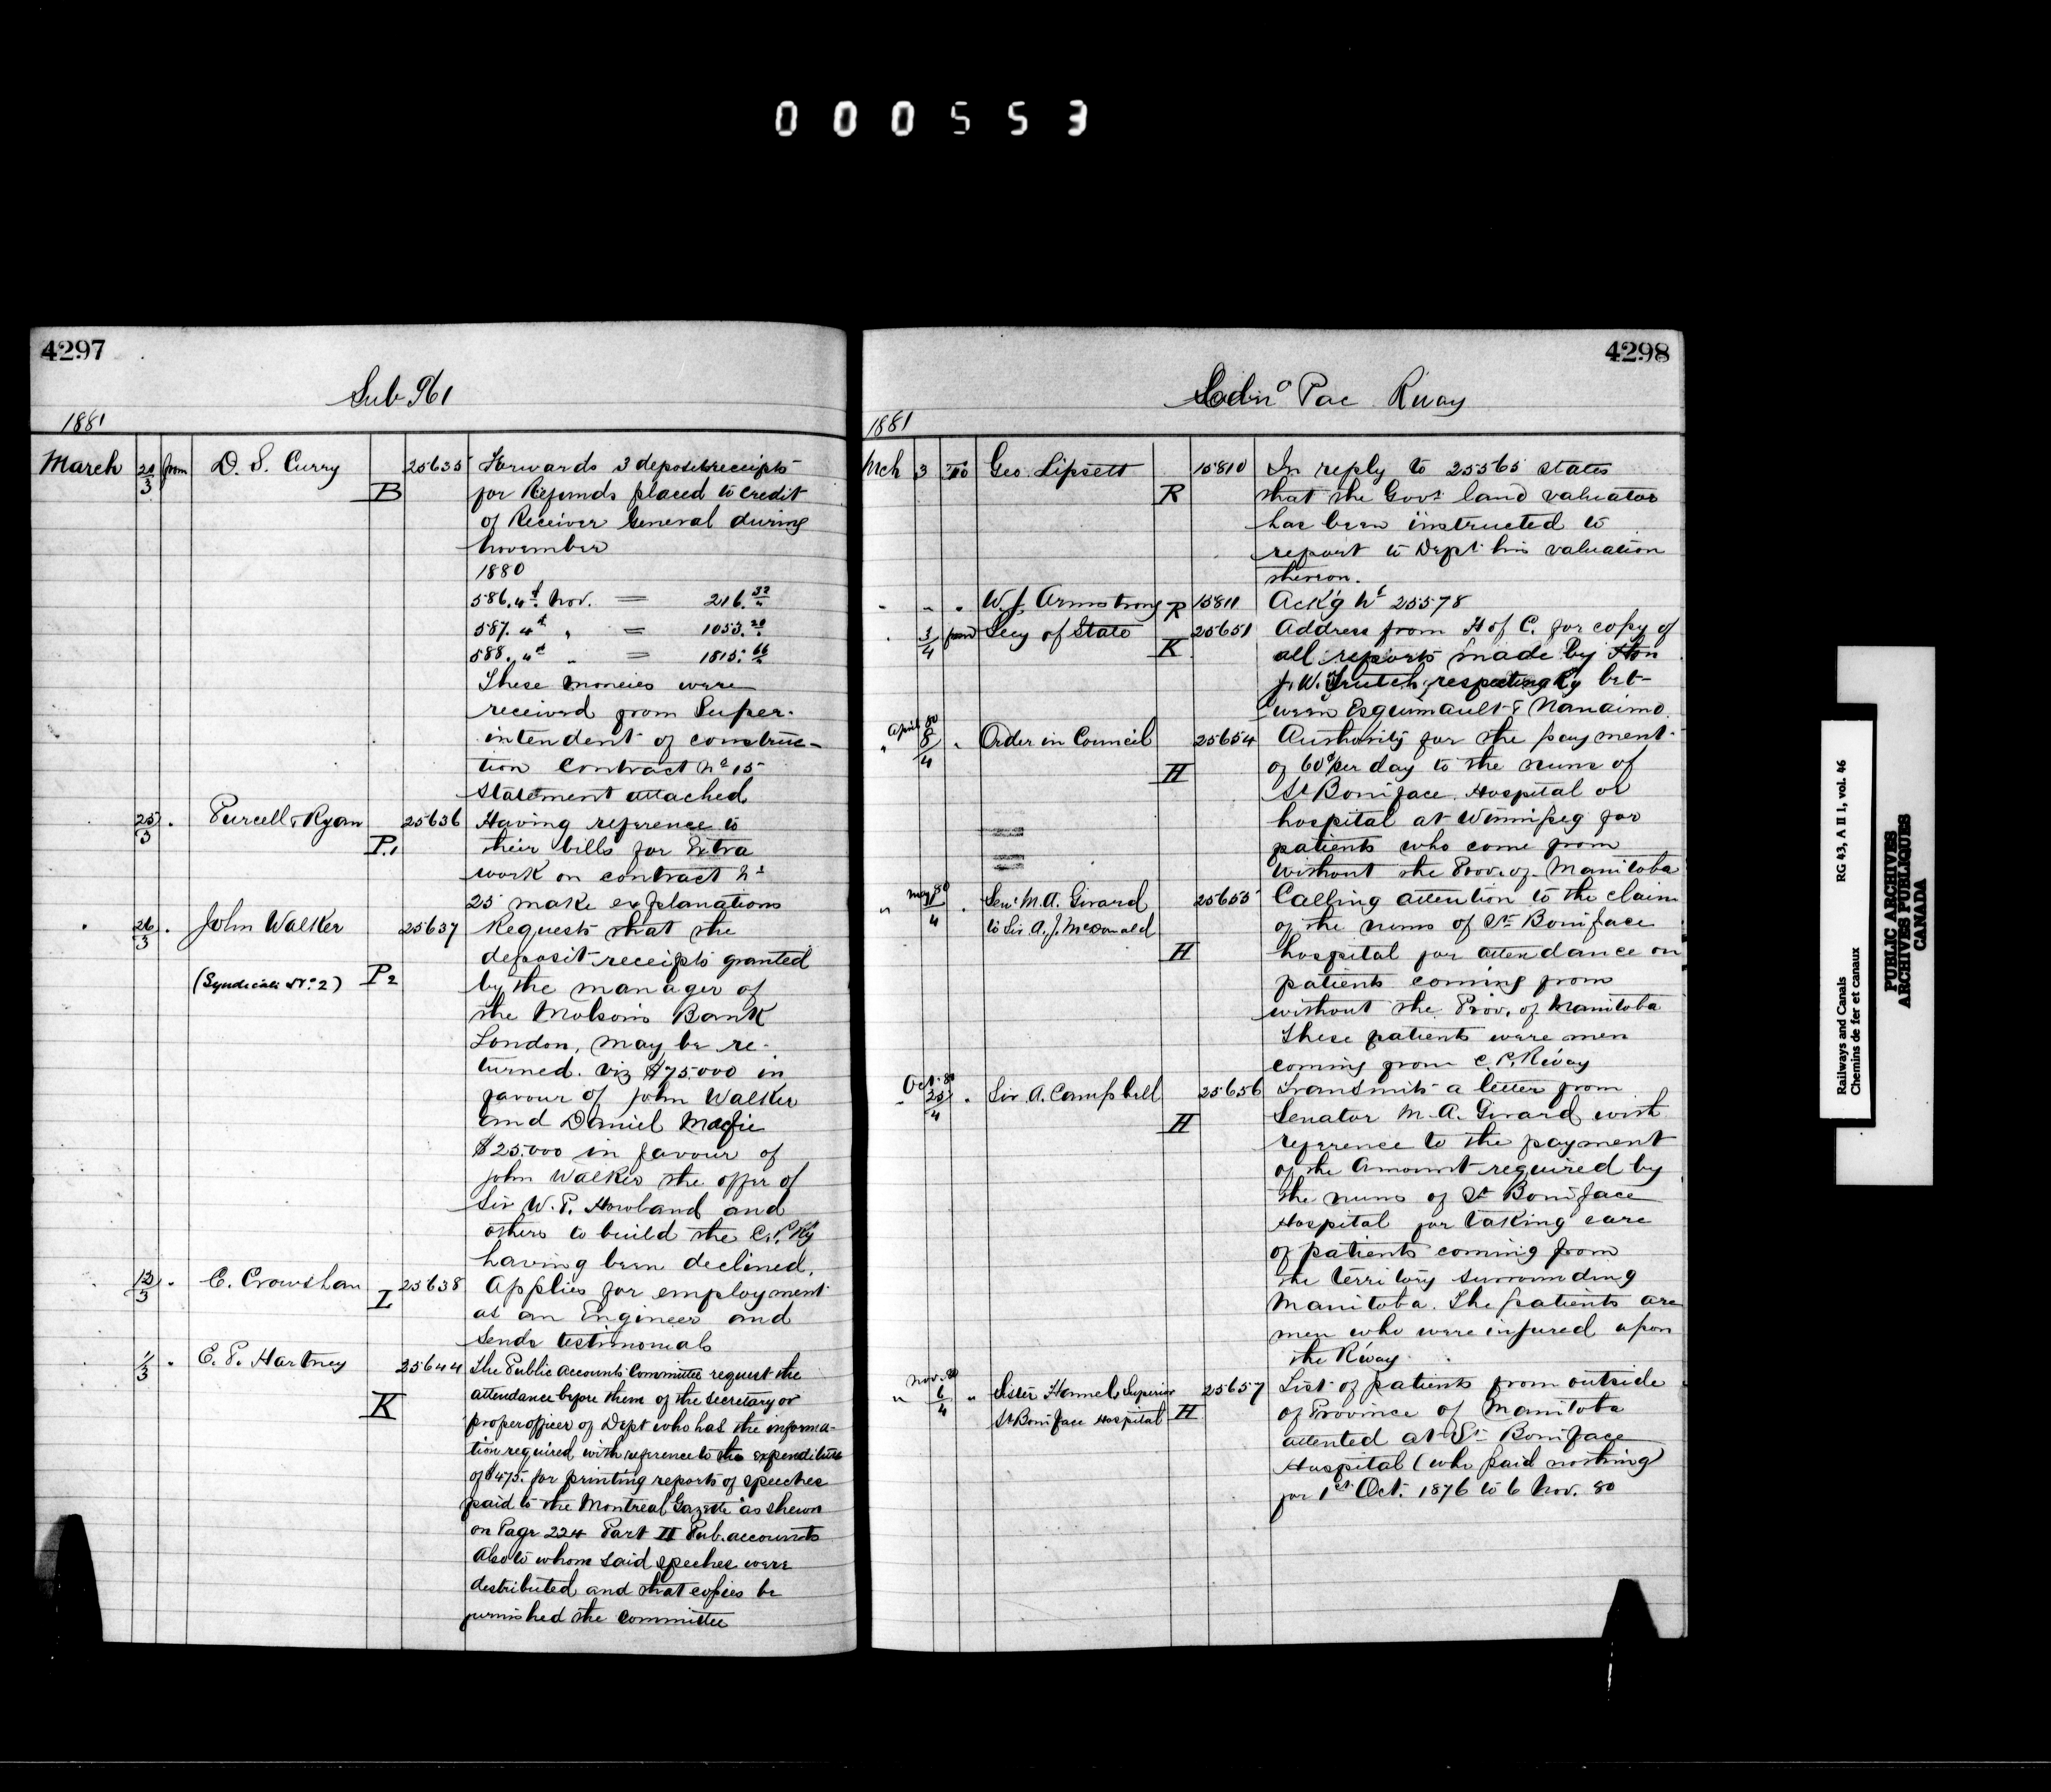 000553
4297
Sub 961
1881
March 24/3 from D. S. Curry B 25635 Forwards 3 deposit receipts
for Refunds placed to credit
of Receiver General during
November
1880
586. 4th Nov. = 216.32
587. 4th " = 1053.20
588. 4th " = 1815.66
These moneies were
received from Super-
intendent of construc-
tion Contract No 15
Statement attached
25/3 " Purcell & Ryan P.1 25636 Having reference to
their bills for Extra
work on contract No
25 make explanations
26/3 " John Walker 25637 Requests that the
deposit receipts granted
(Syndicate No. 2) P2 by the manager of
the Molsons Bank
London, may be re-
turned. viz $75.000 in
favour of John Walker
and Daniel Macfie
$25.000 in favour of
John Walker the offer of
Sir W. P. Howland and
others to build the C. P. Ry
having been declined.
12/3 " C. Crowshan L 25638 Applies for employment
as an Engineer and
sends testimonials
1/3 " E. P. Hartney K 25644 The Public Accounts Committee request the
attendance before them of the Secretary or
proper officer of Dept who has the informa-
tion required with reference to the expenditure
of $475. for printing reports of speeches
paid to the Montreal "Gazette" as shewn
on Page 224 Part II Pub. accounts
Also to whom said speeches were
distributed and that copies be
furnished the Committee
4298
Pac Rway
1881
Mch 3 To Geo Lipsett R 15810 In reply to 25565 states
that the Govt land valuator
has been instructed to
report to Dept his valuation
thereon.
" " " W. J. Armstrong R 15811 Ack'g No 25578
" 3/4 from Secy of State K 25651 Address from H of C. for copy of
all reports made by Hon
J. W. Trutch, respecting Ry bet-
ween Esquimault & Nanaimo
" April 80 8/4 " Order in Council H 25654 Authority for the payment
of 60c per day to the nuns of
St Boniface Hospital or
hospital at Winnipeg for
patients who come from
without the Prov. of Manitoba
" May 80 /4 " Senr M. A. Girard 25655 Calling attention to the claim
to Sir A. J. McDonald of the nuns of St Boniface
H hospital for attendance on
patients coming from
without the Prov. of Manitoba
These patients were men
coming from C. P. R'way
" Oct. 80 25/4 " Sir A. Campbell H 25656 Transmits a letter from
Senator M. A. Girard with
reference to the payment
of the Amount required by
the nuns of St Boniface
Hospital for taking care
of patients coming from
the territory surrounding
Manitoba. The patients are
men who were injured upon
the R'way.
" Nov. 80 6/4 " Sister Superior 25657 List of patients from outside
St Boniface Hospital H of Province of Manitoba
attented at St Boniface
Hospital (who paid nothing)
for 1st Oct. 1876 to 6 Nov. 80
Railways and Canals RG 43, A II 1, vol. 46
Chemins de fer et canaux
PUBLIC ARCHIVES
ARCHIVES PUBLIQUES
CANADA